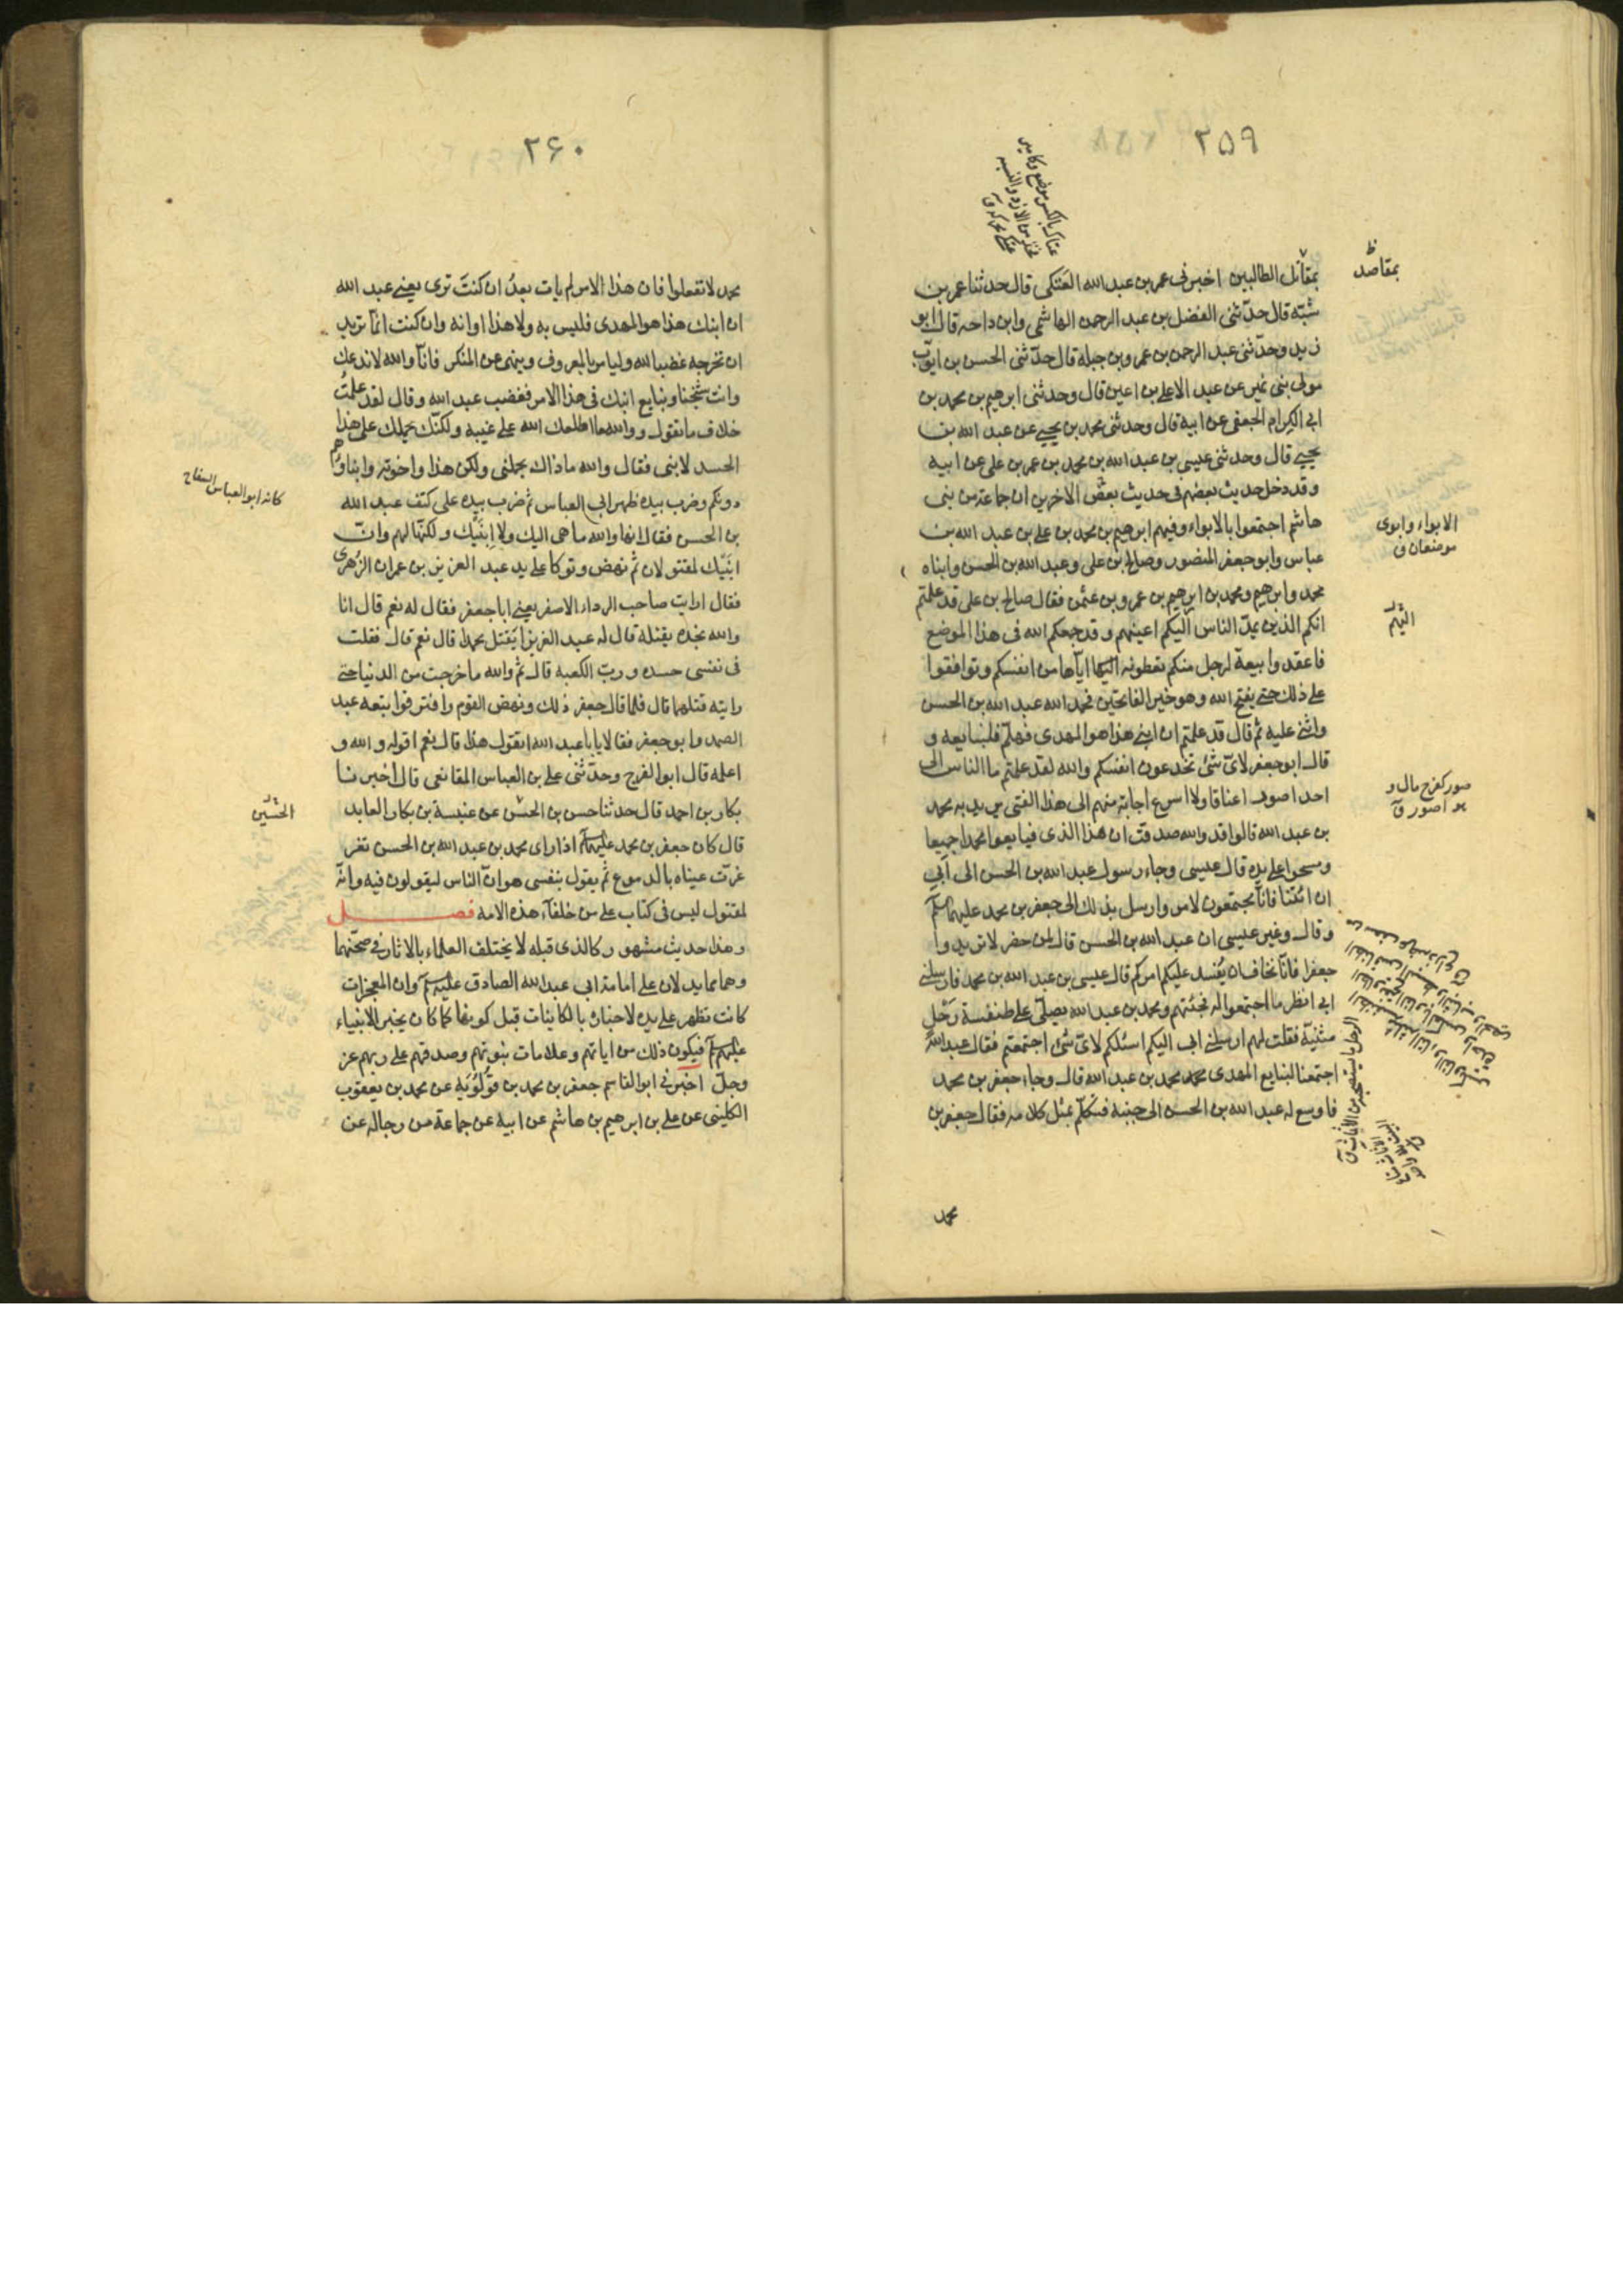 ٢٥٩
بمقاتل الطالبين اخبرنى عمر بن عبدالله العتكى قال حدثنا عمر بن
شبّة قال حدّثنى الفضل بن عبد الرحمن الهاشمى وابن داحه قال ابو
زيد وحدّثنى عبد الرحمن بن عمرو بن جبلة قال حدّثنى الحسن بن ايوّب
مولى بنى نمير عن عبد الاعلى بن اعين قال وحدثنى ابرهيم بن محمد بن
ابى الكرام الجعفى عن ابيه قال وحدثنى محمد بن يحيى عن عبد الله بن
يحيى قال وحدثنى عيسى بن عبد الله بن محمد بن عمر بن على عن ابيه
وقد دخل حديث بعضهم فى حديث بعض الاخرين ان جماعة من بنى
هاشم اجتمعوا بالابواء وفيهم ابرهيم بن محمد بن على بن عبد الله بن
عباس وابو جعفر المنصور وصالح بن على وعبد الله بن الحسن وابناه
محمد وابرهيم ومحمد بن ابرهيم بن عمرو بن عثمن فقال صالح بن على قد علمتم
انكم الذين يمدّ الناس اليكم اعينهم وقد جمعكم الله فى هذا الموضع
فاعقدوا بيعة لرجل منكم تعطونه اليكما ايّاها من انفسكم وتوافقوا
على ذلك حتى يفتح الله وهو خير الفاتحين فحمد الله عبد الله بن الحسن
واثنى عليه ثم قال قد علمتم ان ابنى هذا هو المهدى فهلمّ فلنبايعه و
قال ابو جعفر لاىّ شئ تخدعون انفسكم والله لقد علمتم ما الناس الى
احد اصور اعناقا ولا اسرع اجابة منهم الى هذا الفتى يريد به محمد
بن عبد الله قالوا قد والله صدقت ان هذا الذى فبايعوا محمدا جميعا
ومسحوا على يده قال عيسى وجاء رسول عبد الله بن الحسن الى ابى
ان ائتنا فانّا مجتمعون لامر وارسل بذلك الى جعفر بن محمد عليهما السلم
وقال وغير عيسى ان عبد الله بن الحسن قال لمن حضر لا تريدوا
جعفرا فانّا نخاف ان يفسد عليكم امركم قال عيسى بن عبد الله بن محمد فارسلنى
ابى انظر ما اجتمعوا له فجئتهم ومحمد بن عبد الله يصلّى على طنفسة رحل
مثنيّة فقلت لهم ارسلنى ابى اليكم اسئلكم لاىّ شئ اجتمعتم فقال عبد الله
اجتمعنا لنبايع المهدى محمد بن عبد الله قال وجاء جعفر بن محمد
فاوسع له عبد الله بن الحسن الى جنبه فتكلّم بمثل كلامه فقال جعفر بن
محمد
بمقاصد
الابواء وابوى
موضعان ق
اليهم
صور كفرح مال و
هو اصور ق
٢۶٠
محمد لا تفعلوا فان هذا الامر لم يات بعدُ ان كنتَ ترى يعنى عبد الله
ان ابنك هذا هو المهدى فليس به ولا هذا اوانه وان كنت انّما تريد
ان تخرجه غضبا لله وليامر بالمعروف وينهى عن المنكر فانّا والله لا ندعك
وانت شيخنا ونبايع ابنك فى هذا الامر فغضب عبد الله وقال لقد علمتُ
خلاف ما تقول ووالله ما اطلعك الله على غيبه ولكنّك يحملك على هذا
الحسد لابنى فقال والله ماذاك يحملنى ولكن هذا واخوته وابناؤهم
دونكم وضرب بيده ظهر ابى العباس ثم ضرب بيده على كتف عبد الله
بن الحسن فقال انها والله ما هى اليك ولا ابنَيْك ولكنّها لهم وانّ
ابنَيْك لمقتولان ثم نهض وتوكا على يد عبد العزيز بن عمران الزُهرى
فقال ارايت صاحب الرداء الاصفر يعنى ابا جعفر فقال له نعم قال انا
والله نجده يقتله قال له عبد العزيز ايقتل محمدا قال نعم قال فقلت
فى نفسى حسده وربّ الكعبه قال ثم والله ما خرجت من الدنيا حتى
رايته قتلهما قال فلما قال جعفر ذلك ونهض القوم وافترقوا تبعه عبد
الصمد وابو جعفر فقالا يابا عبد الله اتقول هذا قال نعم اقوله والله و
اعلمه قال ابو الفرج وحدّثنى على بن العباس المقانعى قال اخبرنا
بكار بن احمد قال حدثنا حسن بن الحسن عن عنبسة بن بكار العابد
قال كان جعفر بن محمد عليهما السلم اذا راى محمد بن عبد الله بن الحسن تغر
غرت عيناه بالدموع ثم يقول بنفسى هو انّ الناس ليقولون فيه وانّه
لمقتول ليس فى كتاب على من خلفاء هذه الامه فصل
وهذا حديث مشهور كالذى قبله لا يختلف العلماء بالاثار فى صحّتهما
وهما مما يدلان على امامة ابى عبد الله الصادق عليه السلم وان المعجزات
كانت تظهر على يده لاخباره بالكاينات قبل كونها كما كان يخبر الانبياء
عليهم السلم فيكون ذلك من اياتهم وعلامات نبوتهم وصدقهم على ربهم عز
وجلّ اخبرنى ابو القاسم جعفر بن محمد بن قولُوَيْه عن محمد بن يعقوب
الكلينى عن على بن ابرهيم بن هاشم عن ابيه عن جماعة من رجاله عن
كانه ابو العباس السفاح
الحسين